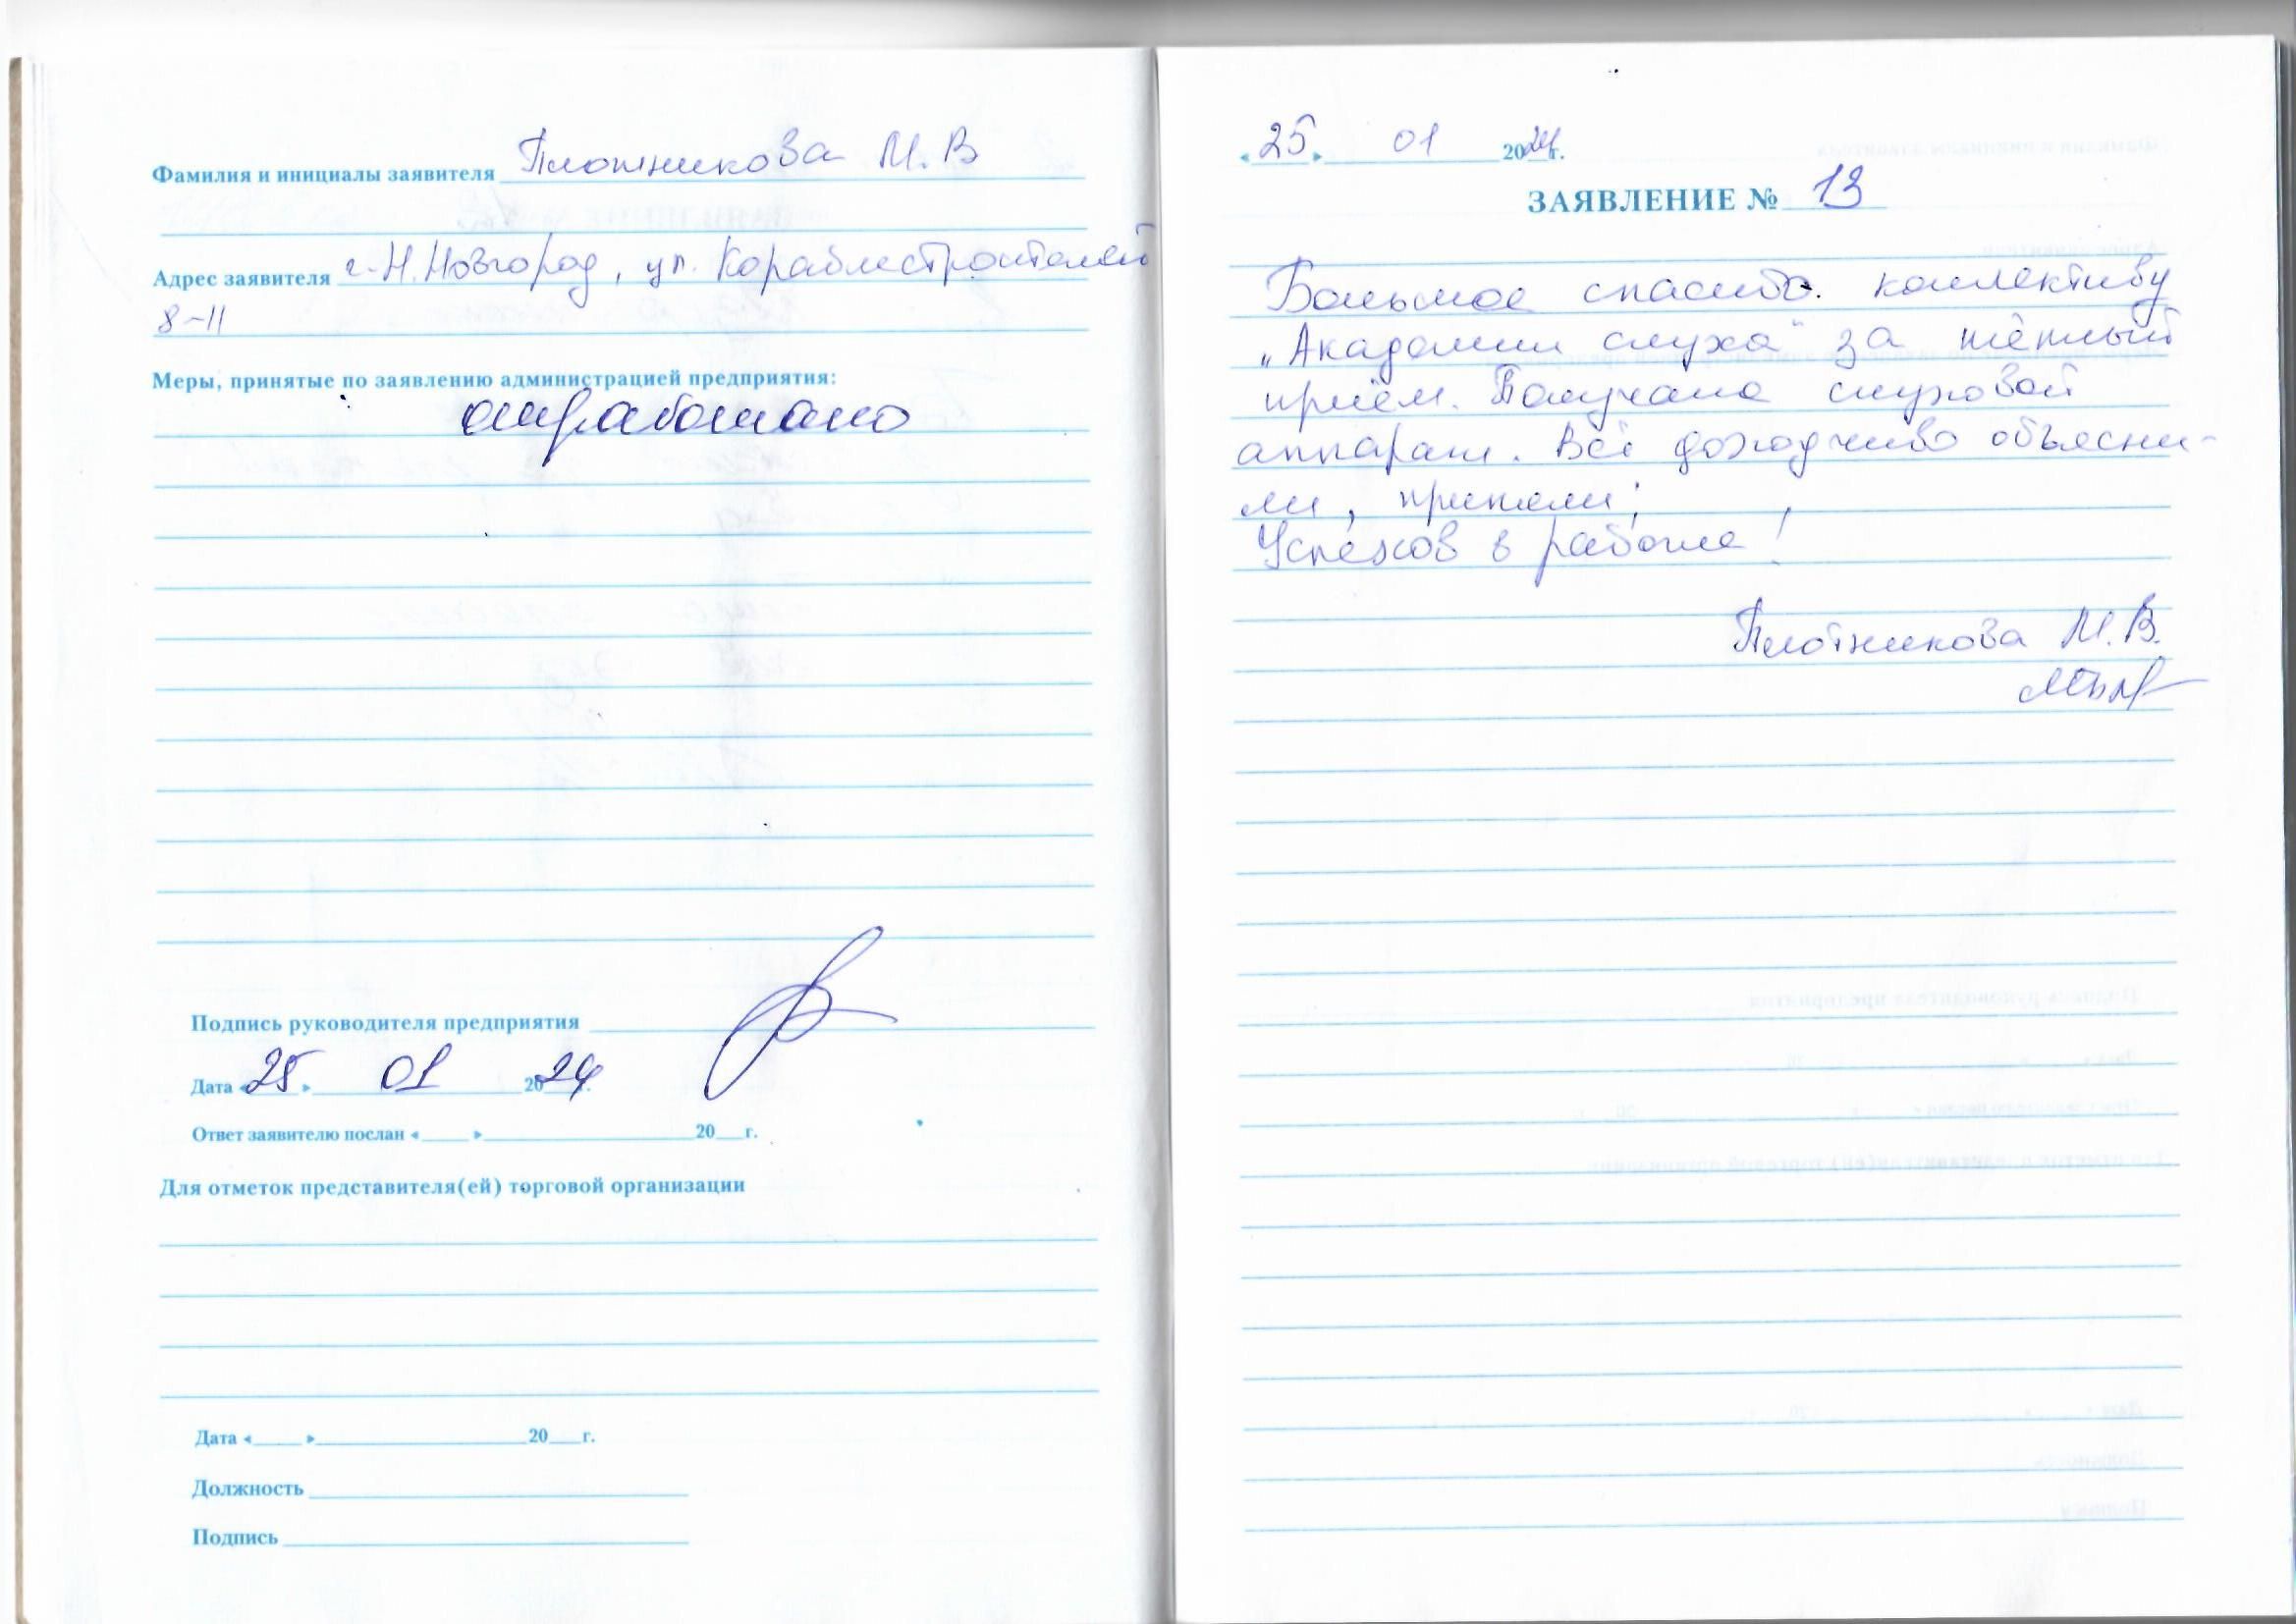 Фамилия и инициалы заявителя Плотникова М. В
Адрес заявителя г. Н. Новгород, ул. Кораблестроителей
8-11
Меры, принятые по заявлению администрацией предприятия:
отработано
Подпись руководителя предприятия
Дата «25» 01 2024г.
Ответ заявителю послан «___» ___ 20__г.
Для отметок представителя(ей) торговой организации
Дата «___» ___ 20__г.
Должность
Подпись
«25» 01 2024г.
ЗАЯВЛЕНИЕ № 13
Большое спасибо коллективу
„Академии слуха" за тёплый
приём. Получала слуховой
аппарат. Всё доходчиво объясни-
ли, приняли;
Успехов в работе!
Плотникова М. В.